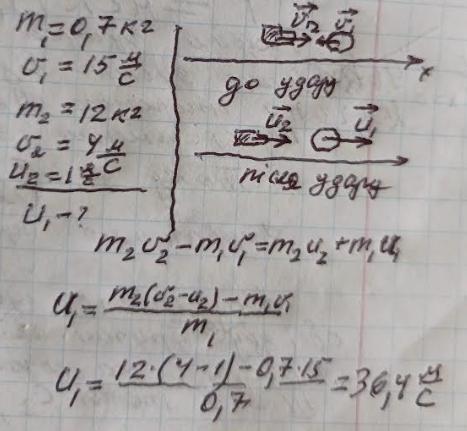 m₁=0,7 кг
υ₁=15 м/с
m₂=12 кг
υ₂=4 м/с
u₂=1 м/с
u₁-?
υ₂ υ₁
x
до удару
u₂ u₁
після удару
m₂υ₂-m₁υ₁=m₂u₂+m₁u₁
u₁=(m₂(υ₂-u₂)-m₁υ₁)/m₁
u₁=(12·(4-1)-0,7·15)/0,7=36,4 м/с